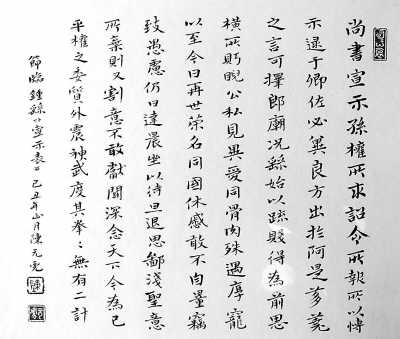 尚書宣示孫權所求詔令所報所以博
示逮于卿佐必冀良方出於阿是芻蕘
之言可擇郎廟況繇始以疏賤得為前恩
橫所眄睨公私見異愛同骨肉殊遇厚寵
以至今日再世榮名同國休慼敢不自量竊
致愚慮仍日達晨坐以待旦退思鄙淺聖意
所棄則又割意不敢獻聞深念天下今為已
平權之委質外震神武度其拳〻無有二計
節臨鍾繇宣示表己丑年正月陳元